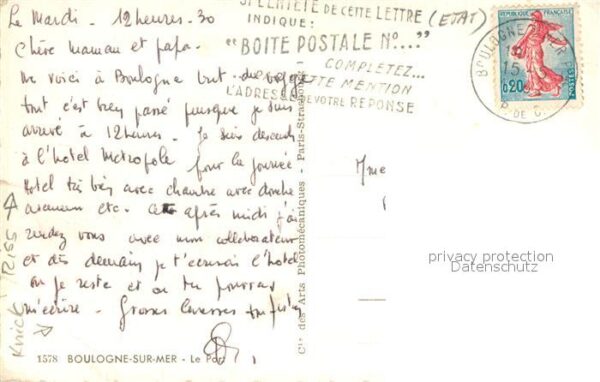 Le Mardi - 12 heures. 30
Chère Maman et papa.
Me voici à Boulogne tout
tout c'est bien passé puisque je suis
arrivé à 12 heures. Je suis descendu
à l'hotel Metropole pour la journée
Hotel très bien avec chambre avec douche
ascenseur etc. Cette après midi j'ai
rendez vous avec mon collaborateur
et dès demain je t'écrirai l'hotel
ou je reste et ou tu pourras
m'écrire. Grosses caresses
1578 BOULOGNE-SUR-MER - Le Port
Knick
RISS
Cie des Arts Photomécaniques - Paris-Strasbourg
SI L'ENTETE DE CETTE LETTRE (ETAT)
INDIQUE:
"BOITE POSTALE No...."
COMPLETEZ...
CETTE MENTION
L'ADRESSE DE VOTRE REPONSE
BOULOGNE
P. DE C.
REPUBLIQUE FRANCAISE
0,20
POSTES
Mme
privacy protection
Datenschutz